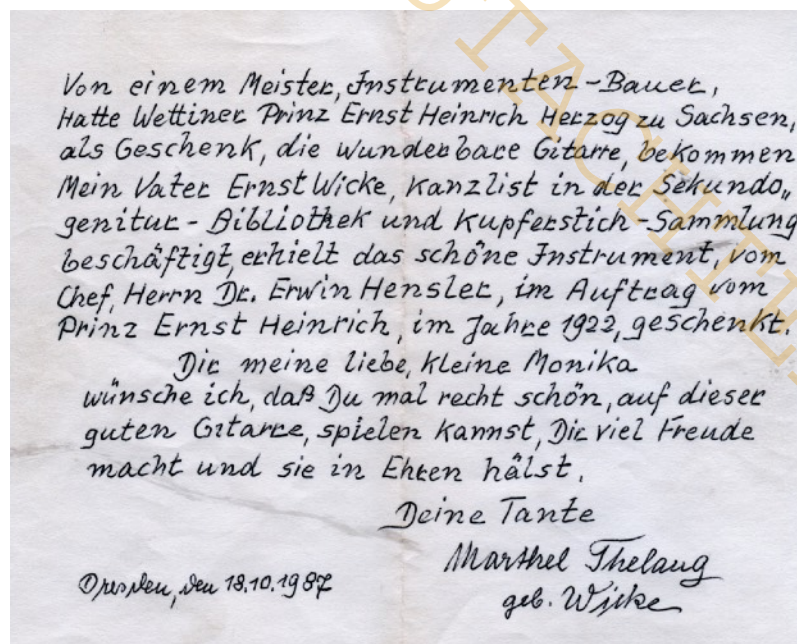 Von einem Meister, Instrumenten-Bauer,
Hatte Wettiner Prinz Ernst Heinrich Herzog zu Sachsen,
als Geschenk, die wunderbare Gitarre, bekommen
Mein Vater Ernst Wicke, Kanzlist in der Sekundo„
genitur-Bibliothek und Kupferstich-Sammlung
beschäftigt, erhielt das schöne Instrument, vom
Chef, Herrn Dr. Erwin Hensler, im Auftrag vom
Prinz Ernst Heinrich, im Jahre 1922, geschenkt.
Dir meine liebe, kleine Monika
wünsche ich, daß Du mal recht schön, auf dieser
guten Gitarre, spielen kannst, Dir viel Freude
macht und sie in Ehren hälst.
Deine Tante
Marthel Thelaug
geb. Wicke
Dresden, den 18.10.1987